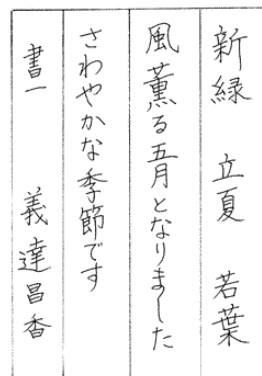 新緑 立夏 若葉
風薫る五月となりました
さわやかな季節です
書一 義達昌香